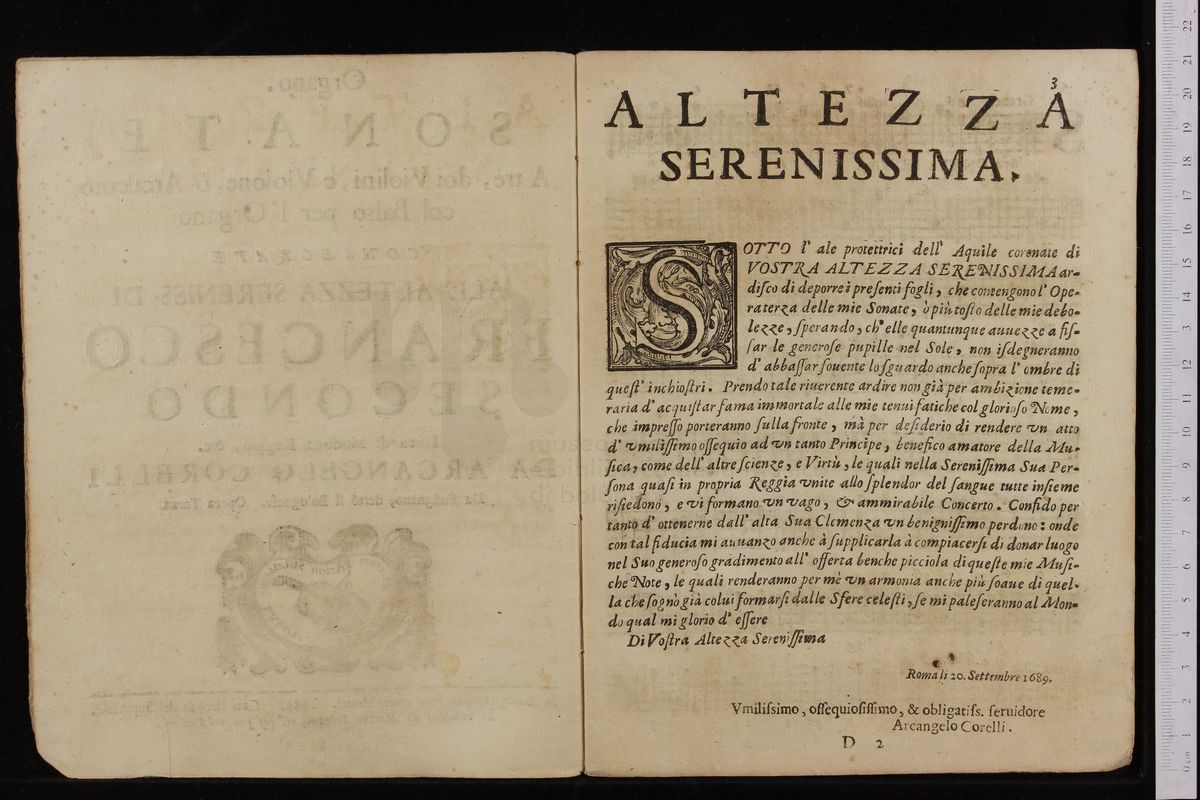 3
ALTEZZA
SERENISSIMA.
SOTTO l' ale protettrici dell' Aquile coronate di
VOSTRA ALTEZZA SERENISSIMA ar-
diſco di deporre i preſenti fogli, che contengono l' Ope-
ra terza delle mie Sonate, ò più toſto delle mie debo-
lezze, ſperando, ch' elle quantunque auuezze a fiſ-
ſar le generoſe pupille nel Sole, non iſdegneranno
d' abbaſſar ſouente lo ſguardo anche ſopra l' ombre di
queſt' inchioſtri. Prendo tale riuerente ardire non già per ambizione teme-
raria d' acquiſtar fama immortale alle mie tenui fatiche col glorioſo Nome,
che impreſſo porteranno ſulla fronte, mà per deſiderio di rendere vn atto
d' vmiliſſimo oſſequio ad vn tanto Principe, benefico amatore della Mu-
ſica, come dell' altre ſcienze, e Virtù, le quali nella Sereniſſima Sua Per-
ſona quaſi in propria Reggia vnite allo ſplendor del ſangue tutte inſieme
riſiedono, e vi formano vn vago, & ammirabile Concerto. Confido per
tanto d' ottenerne dall' alta Sua Clemenza vn benigniſſimo perdono: onde
con tal fiducia mi auuanzo anche à ſupplicarla à compiacerſi di donar luogo
nel Suo generoſo gradimento all' offerta benche picciola di queſte mie Muſi-
che Note, le quali renderanno per mè vn armonia anche più ſoaue di quel-
la che ſognò già colui formarſi dalle Sfere celeſti, ſe mi paleſeranno al Mon-
do qual mi glorio d' eſſere
Di Voſtra Altezza Sereniſſima
Roma li 20. Settembre 1689.
Vmiliſsimo, oſſequioſiſſimo, & obligatiſs. ſeruidore
Arcangelo Corelli.
D 2